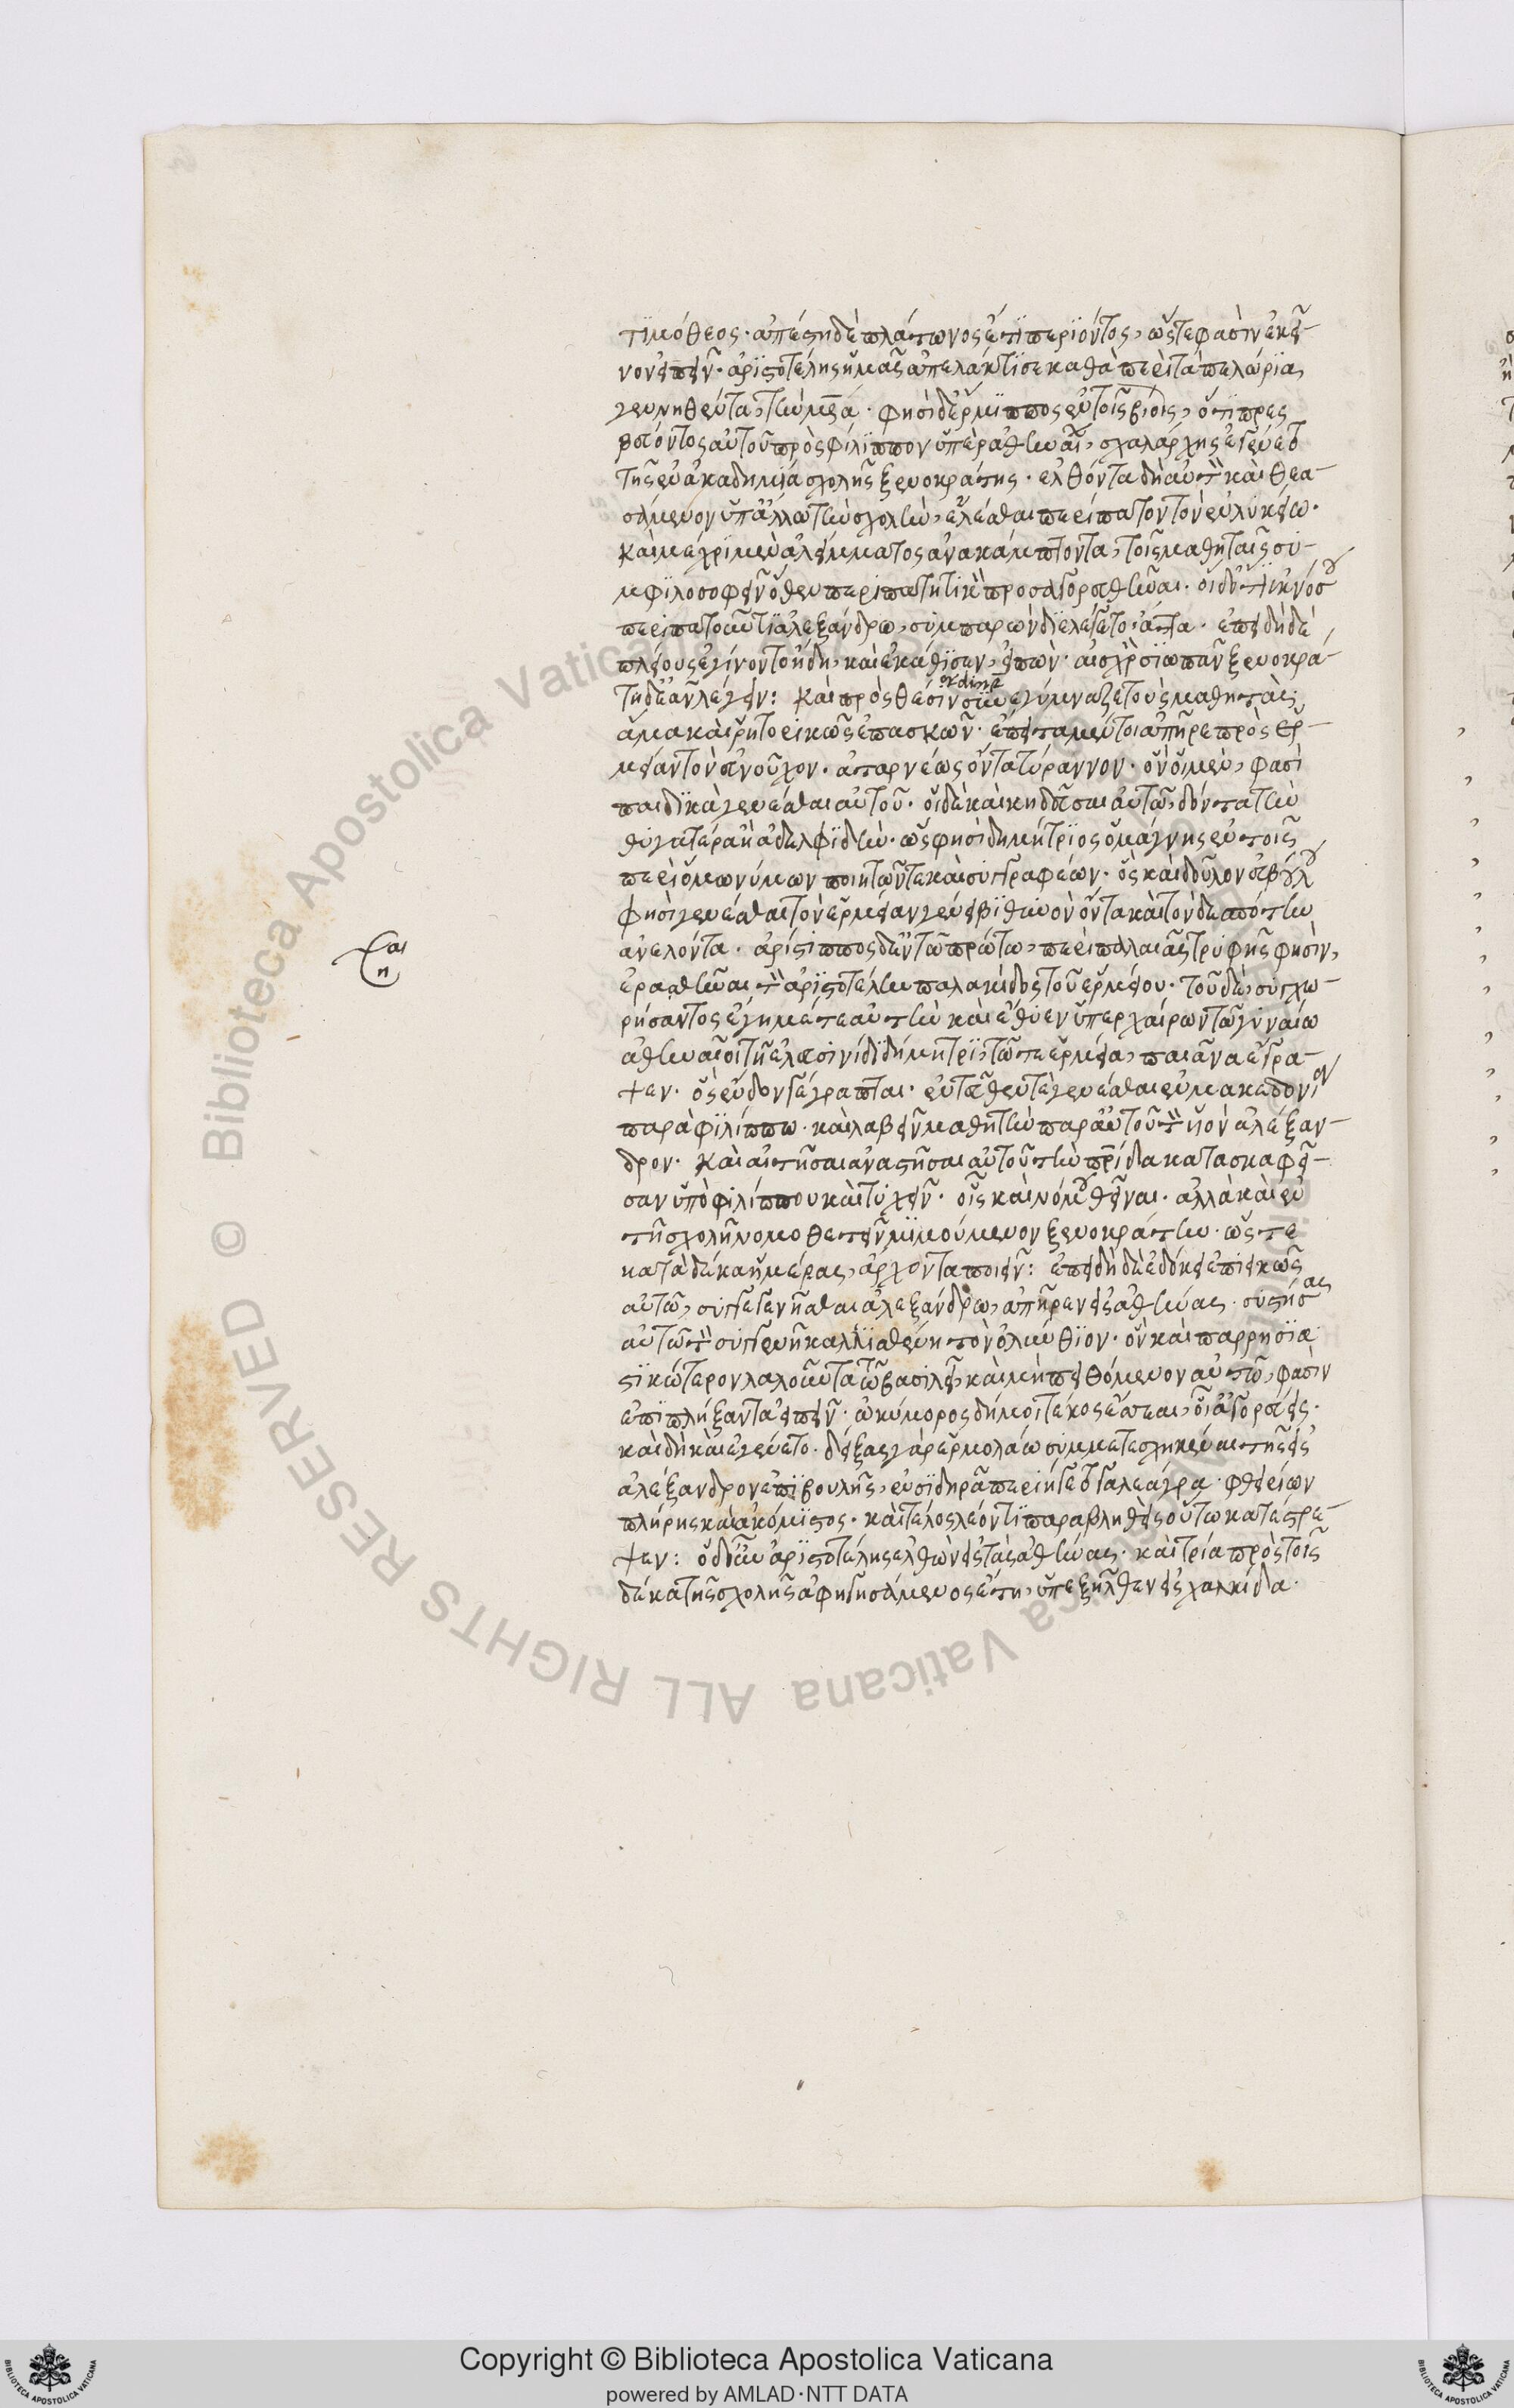 τιμόθεος· ἀπέστη δὲ πλάτωνος ἔτι περιόντος, ὥστε φασὶν ἐκεῖ-
νον εἰπεῖν· ἀριστοτέλης ἡμᾶς ἀπελάκτισε καθὰ περεὶ τὰ πελώρια
γεννηθέντα, τὴν μρα· φησὶ δ' ἕρμιππος ἐν τοῖς βίοις, ὅτι πρεσ
βεύοντος αὐτοῦ πρὸς φίλιππον ὑπὲρ ἀθηναί, σχαλάρχης ἐγένετ
τῆς ἐν ἀκαδημεία σχολῆς ξενοκράτης· ἐλθόντα δὴ αὐτὸν καὶ θεα-
σάμενον ὑπ' ἄλλω τὴν σχολὴν, ἑλέσθαι περείπατον τὸν ἐν λυκείω·
καὶ μέχρι μὲν ἀλείμματος ἀνακάμπτοντα, τοῖς μαθηταῖς συ-
μφιλοσοφεῖν ὅθεν περιπατητικὸν προσαγορευθῆναι· οἱ δ' ὅτι ἐκ νόσου
περειπατοῦντι ἀλεξάνδρω, συμπαρὼν διελέγετο ἄττα· ἐπειδὴ δὲ
πλείους ἐγίνοντο ἤδη, καὶ ἐκάθισεν, εἰπὼν· αἰσχρὸν σιωπᾶν ξενοκρά-
τη δ' ἐᾶν λέγειν: καὶ πρὸς θέσιν συνεγύμναζε τοὺς μαθητὰς
ordine
ἅμα καὶ ῥητορικῶς ἐπασκῶν· ἔπειτα μέντοι ἀπῆρε πρὸς ἑρ-
μείαν τὸν εὐνοῦχον· ἀταρνέως ὄντα τύραννον· ὃν οἱ μὲν, φασὶ
παιδικὰ γενέσθαι αὐτοῦ· οἱ δὲ καὶ κηδεῦσαι αὐτῶ, δόντα τὴν
θυγατέρα ἢ ἀδελφιδὴν· ὥς φησὶ δημήτριος ὁ μάγνης ἐν τοῖς
περεὶ ὁμωνύμων ποιητῶν τε καὶ συγγραφέων· ὃς καὶ δοῦλον εὐβούλου
φησὶ γενέσθαι τὸν ἑρμείαν γένει βιθυνὸν ὄντα καὶ τὸν δεσπότην
ἀνελόντα· ἀρίστιππος δ' ἐν τῶ πρώτω, περεὶ παλαιᾶς τρυφῆς φησὶν,
ἐρασθῆναι τὸν ἀριστοτέλην παλακίδος τοῦ ἑρμείου· τοῦ δὲ, συγχω-
ρήσαντος ἔγημέ τε αὐτὴν καὶ ἔθυεν ὑπερχαίρων τῶ γυναίω
ἀθηναῖοι τῆ ἐλευσινίδι δήμητρι, τῶ τε ἑρμεία, παιᾶνα ἔγρα-
ψεν· ὃς ἔνδον γέγραπται· ἐντεῦθεν τὲ γενέσθαι ἐν μακεδονίον
παρὰ φιλίππω· καὶ λαβεῖν μαθητὴν παρ' αὐτοῦ τὸν υἱὸν ἀλέξαν-
δρον· καὶ αἰτῆσαι ἀναστῆσαι αὐτοῦ τὴν πρίδα κατασκαφεῖ-
σαν ὑπὸ φιλίππου καὶ τυχεῖν· οἷς καὶ νόμους θεῖναι· ἀλλὰ καὶ ἐν
τῆ σχολῆ νομοθετεῖν μιμούμενον ξενοκράτην· ὥστε
κατὰ δέκα ἡμέρας, ἄρχοντα ποιεῖν: ἐπειδὴ δὲ ἐδόκει ἐπιεικῶς
αὐτῶ, συγγεγενῆσθαι ἀλεξάνδρω, ἀπῆρεν εἰς ἀθήνας· συστήσας
αὐτῶ τὸν συγγενῆ καλλισθένη τὸν ὀλύνθιον· ὃν καὶ παρρησια
στικώτερον λαλοῦντα τῶ βασιλεῖ, καὶ μὴ πειθόμενον αὐτῶ, φασὶν
ἐπιπλήξαντα εἰπεῖν· ὠκύμορος δή μοι τέκος ἔσσεαι, οἷ' ἀγορεύεις·
καὶ δὴ καὶ ἐγένετο· δόξας γὰρ ἑρμολάω συμμετεσχηκέναι τῆς εἰς
ἀλέξανδρον ἐπιβουλῆς, ἐν σιδηρᾶ περειήγετο γαλεάγρα· φθειρίων
πλήρης καὶ ἀκόμιστος· καὶ τέλος λέοντι παραβληθεὶς οὕτω κατέστρε-
ψεν: ὁ δ' οὖν ἀριστοτέλης ἐλθὼν εἰς τὰς ἀθήνας· καὶ τρία πρὸς τοῖς
δέκα τῆς σχολῆς ἀφηγησάμενος ἔτη, ὑπεξῆλθεν εἰς χαλκίδα·